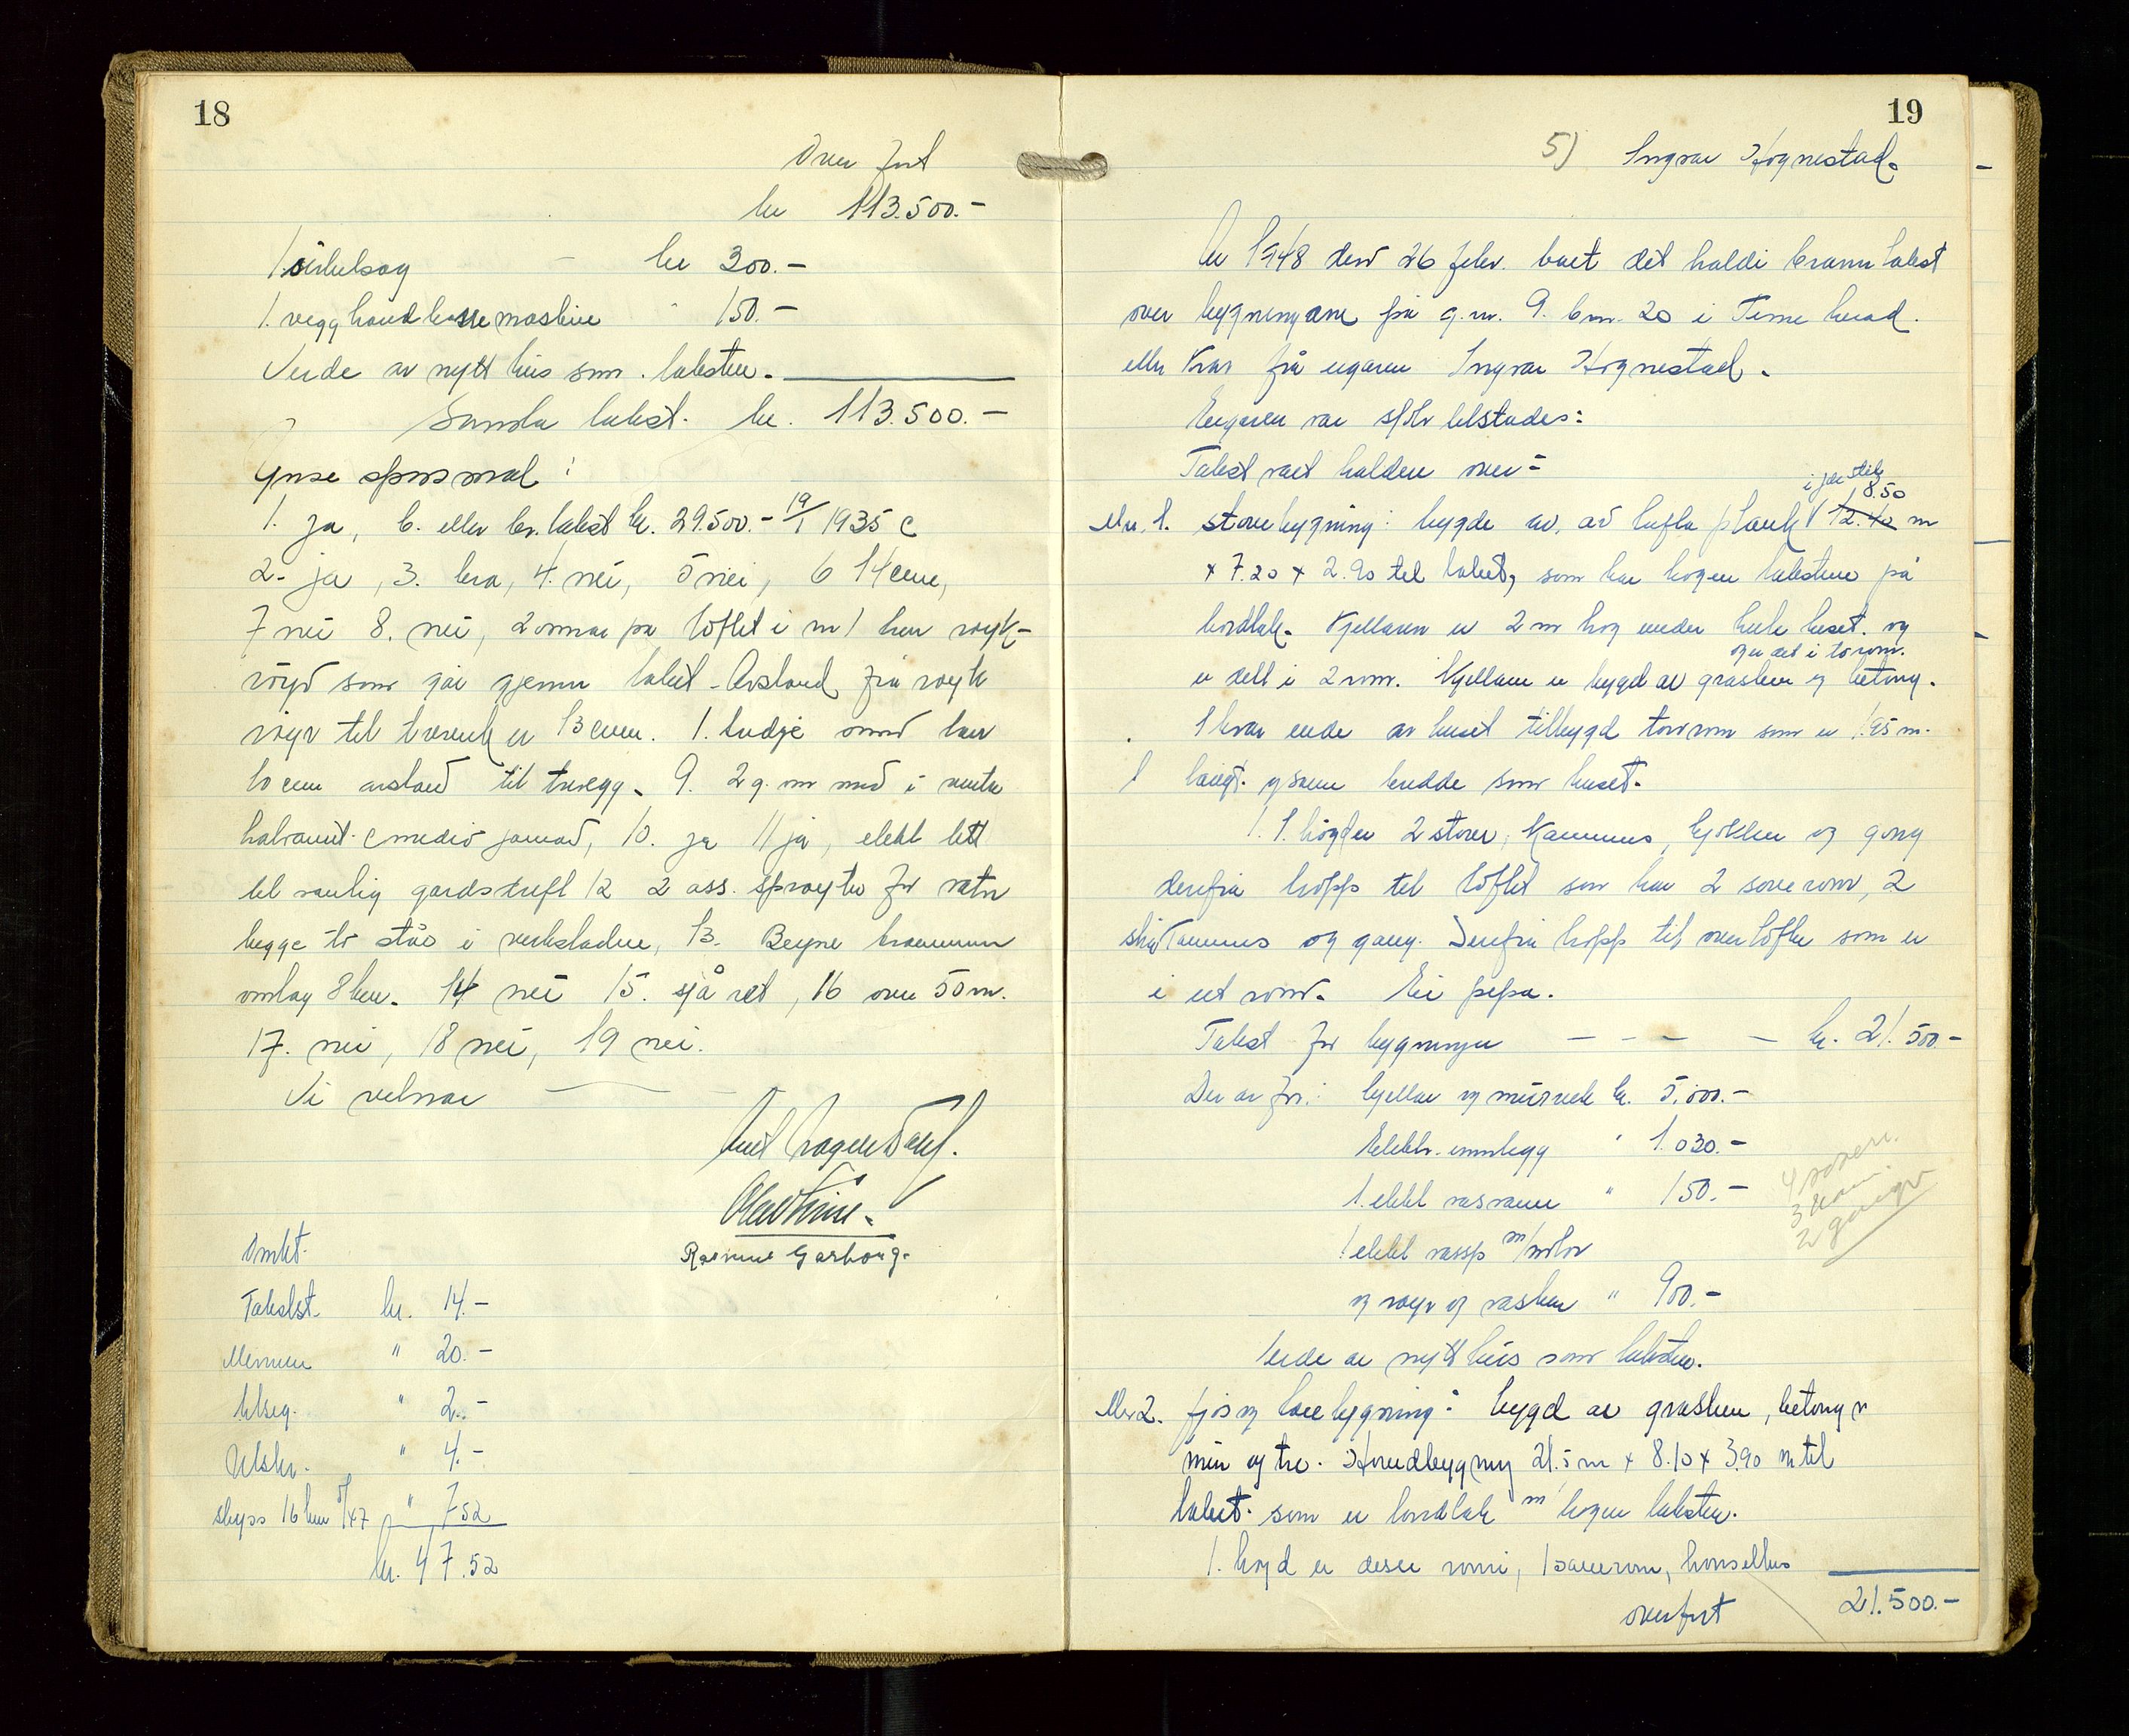 18
Over ført
kr 113.500.-
1 sirkelsag kr 300.-
1. vegghandbassemaskine " 150.-
Verde av nytt hus som taksten.
Samla takst. kr. 113.500.-
Ymse spørsmål:
1. ja, b. eller br.takst kr. 29.500.- 19/1 1935 c
2. ja, 3. bra, 4. nei, 5 nei, 6 14 cm,
7 nei 8. nei, 2 omnar på loftet i nr 1 har røyk-
røyr som går gjenom taket - Avstand frå røyk
røyr til treverk er 13 cm. 1. tredje omn har
10 cm avstand til trevegg. 9. 2 g. om året i
10. ja 11 ja, elekt lett
til vanlig gardsdrift 12 2 ass. sprøyte for vatn
begge to står i verkstaden, 13. Bryne
omlag 8 km. 14 nei 15. sjå rct, 16 over 50 m.
17. nei, 18 nei, 19 nei.
Vi vitnar
Rasmus Garborg.
Omkt.
Takslst. kr. 14.-
Mennene " 20.-
Utseg. " 2.-
Utskr. " 4.-
skyss 16 km " 7 52
kr. 47.52
19
5) Ingvar Hognestad.
År 1948 den 26 febr. vart det haldi branntakst
over bygningane på g.nr. 9. bnr. 20 i Time herad.
etter krav frå eigaren Ingvar Hognestad.
Eigaren var sjølv tilstades:
Takst vart halden over:
i jær stil
8.50
Nr. 1. stovebygning: bygde av, av lafta plank 12.40 m
x 7.20 x 2.90 til taket, som har hogen taksten på
bordtak. Kjellaren er 2 m høg under heile huset. og
og er det i to rom.
er delt i 2 rom. Kjellaren er bygd av gråstein og betong.
I kvar ende av huset tilbygd torvrom som er 1.95 m.
langt. og same bredde som huset.
I 1. høgd er 2 stover, kammers, kjøkken og gong
derifrå tropp til loftet som har 2 soverom, 2
skråkammers og gang. Derifrå tropp til overloftet som er
i eit rom. Ei pipa.
Takst for bygningen - - - - kr. 21.500.-
Der av for: kjellar og murverk kr. 5.000.-
Elektr. innlegg " 1.030.-
1. elekt " 150.-
1 elekt m/motor
og røyr og vasken " 900.-
Verde av nytt hus som taksten.
4 stover.
3 kam.
2 ganger
Nr 2. fjøs og løebygning: bygd av gråstein, betong
mur og tre. Hovedbygning 21.5 m x 8.10 x 3.90 m til
taket. som er bordtak m/ hogen taksten.
1. høgd er desse romi, 1 sauerom, hønsehus
overført 21.500.-